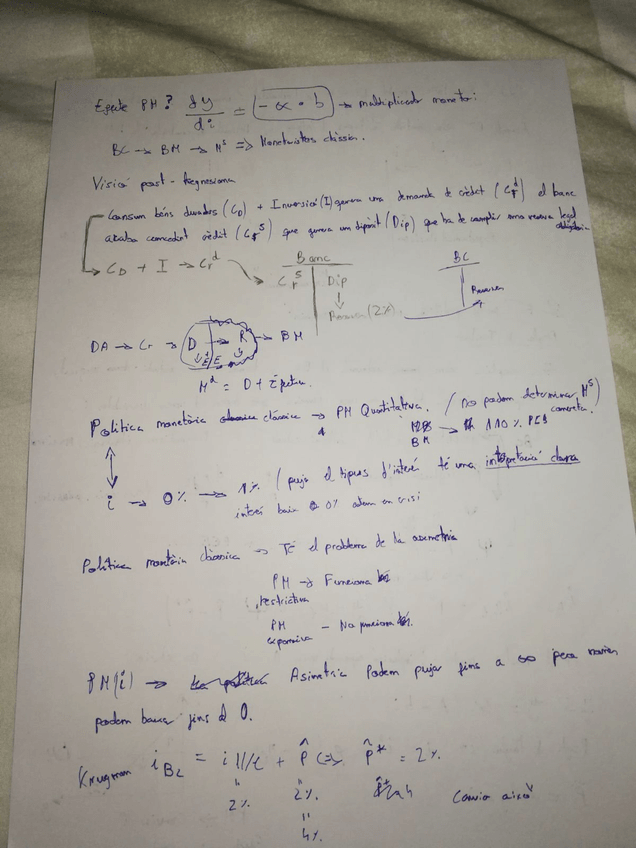 Efecte PM? dy/di = -α · b → multiplicador monetari
BC → BM → M^s => Monetaristes clàssics.
Visió post-Keynesiana
Consum béns duraders (C_D) + Inversió (I) genera una demanda de crèdit (C_r^d) el banc
acaba concedint crèdit (C_r^s) que genera un dipòsit (Dip) que ha de complir una reserva legal
obligatòria
C_D + I → C_r^d
Banc
C_r^s Dip
Reserva (2%)
BC
Reserva
DA → Cr → D → R → BM
E E
M^d = D + Efectiu
Política monetària clàssica → PM Quantitativa. / No podem determinar M^s
concreta.)
BM → 110% PIB
i → 0% → 1% / puja el tipus d'interés té una interpretació clara
interés baix 0% estem en crisi
Política monetària clàssica → Té el problema de la asimetria
PM restrictiva → Funciona bé
PM expansiva - No funciona bé.
PM(i) → Asimetria Podem pujar fins a ∞ pero només
podem baixar fins al 0.
Krugman i_BC = i + P̂ <=> P̂* = 2%
" "
2% 2%. Canvia això
"
4%